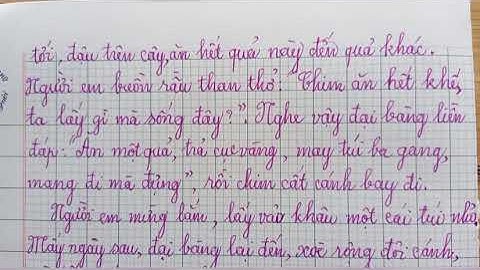 tới, đậu trên cây, ăn hết quả này đến quả khác.
Người em buồn rầu than thở: "Chim ăn hết khế,
ta lấy gì mà sống đây?". Nghe vậy đại bàng liền
đáp: "Ăn một quả, trả cục vàng, may túi ba gang,
mang đi mà đựng", rồi chim cất cánh bay đi.
Người em mừng lắm, lấy vải khâu một cái túi nhỏ.
Mấy ngày sau, đại bàng lại đến, xoè rộng đôi cánh,